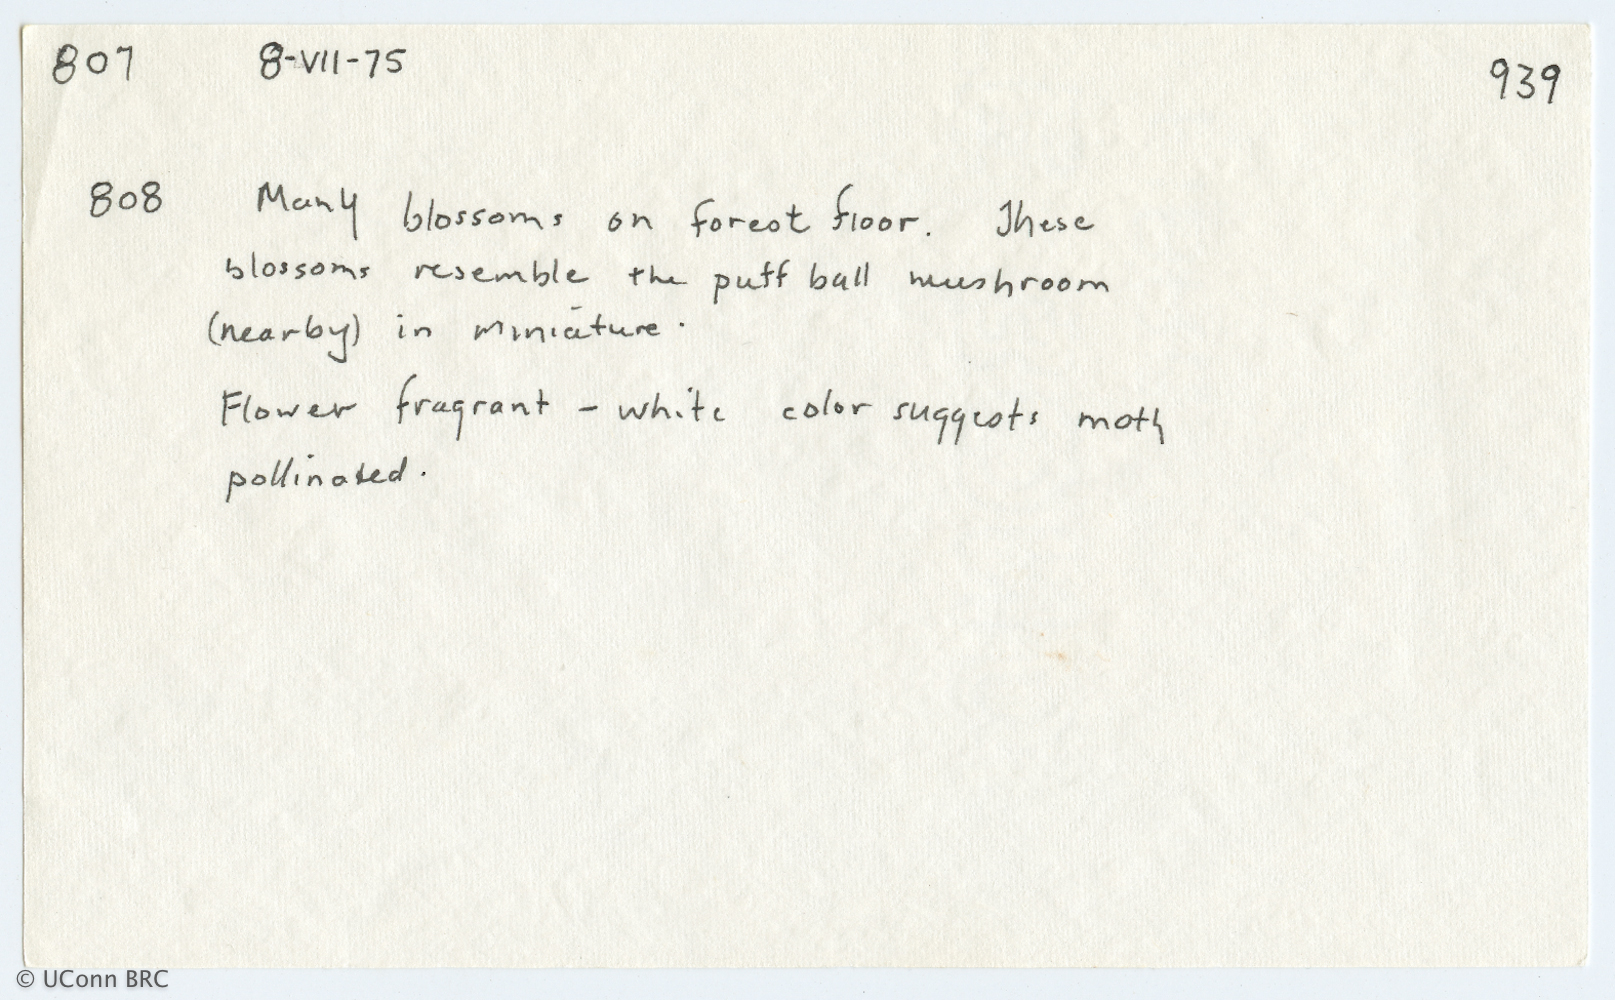 807 8-VII-75 939
808 Many blossoms on forest floor. These
blossoms resemble the puff ball mushroom
(nearby) in miniature.
Flower fragrant - white color suggests moth
pollinated.
© UConn BRC